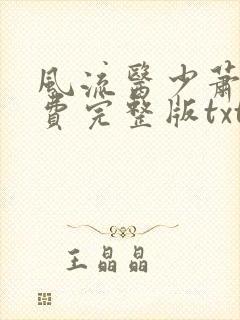 風流醫少蕭
費完整版txt
王晶晶